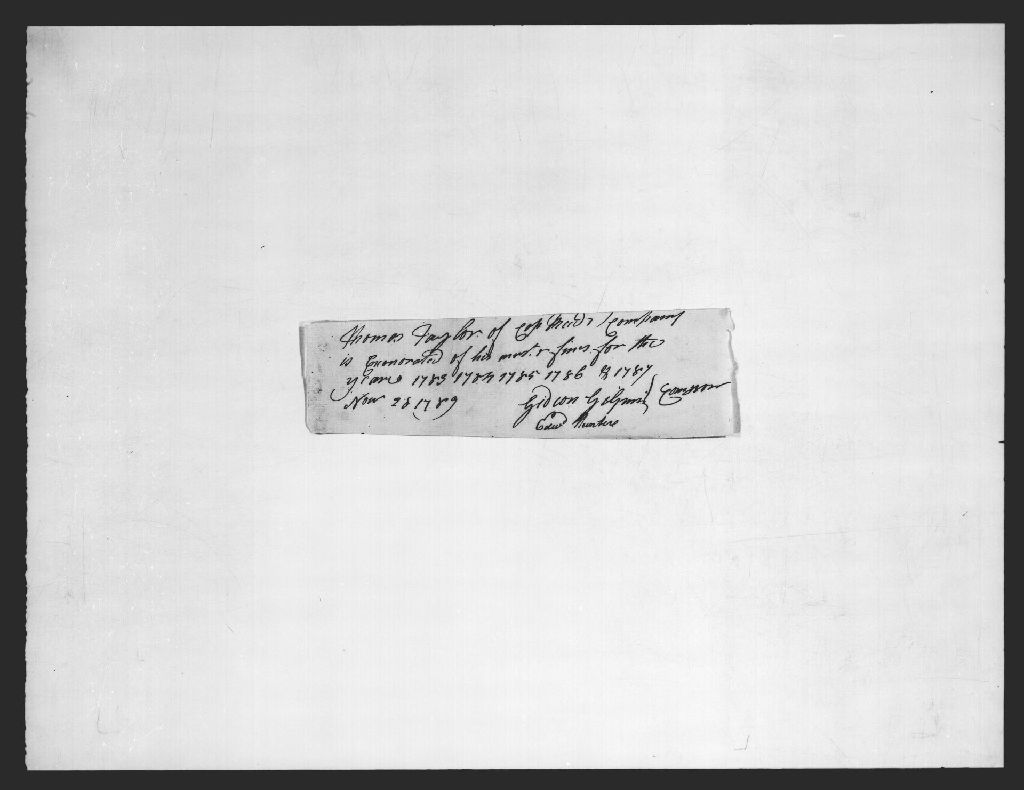 Thomas Taylor of Cap Reeds Company
is Exonorated of his muster fines for the
years 1783 1784 1785 1786 & 1787
Nov 28 1789 Gideon Gilpin
Edwd Hunter